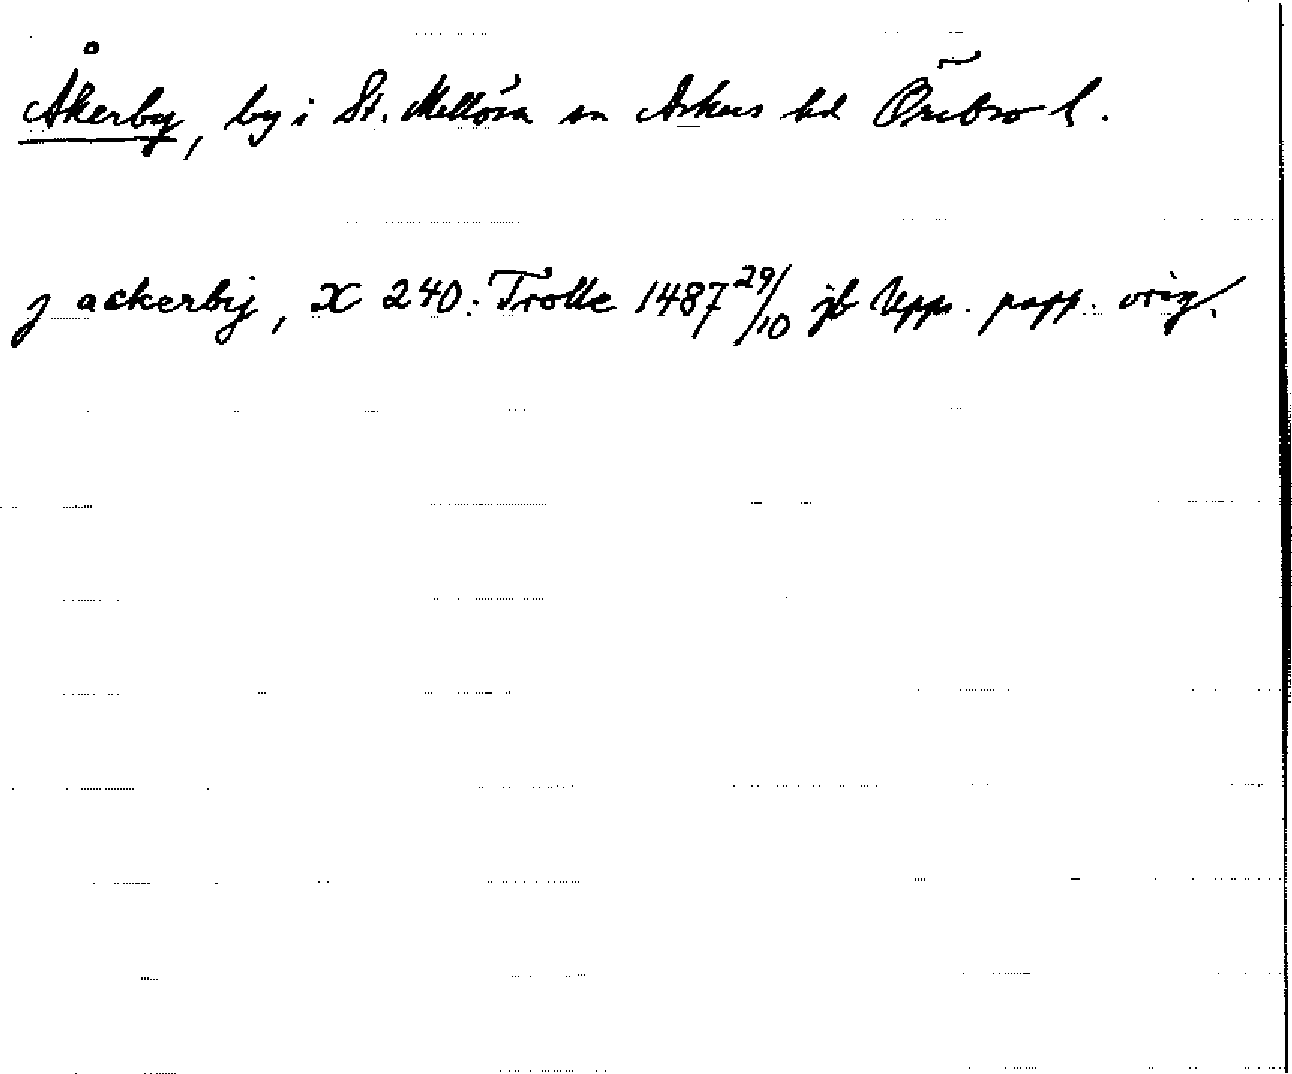 Åkerby, by i St. Mellösa sn Askers hd Örebro l.
j ackerbij, X 240: Trolle 1487 29/10 jb Upps. papp. orig.